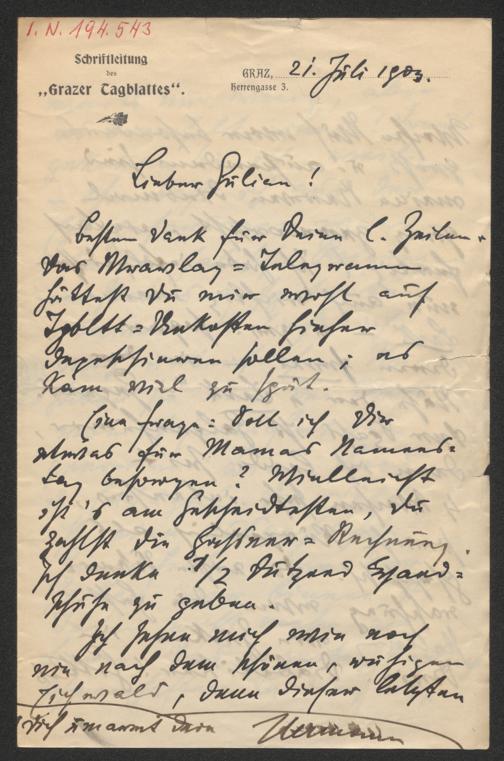 I. N. 194.543
Schriftleitung
des
„Grazer Tagblattes“.
GRAZ, 21. Juli 1903.
Herrengasse 3.
Lieber Julian!
Besten Dank für Deine l. Zeilen.
Das Telegramm
hättest Du mir wohl auf
Tgbltt=Unkosten hieher
depeschieren sollen; es
kam viel zu spät.
Eine Frage: Soll ich Dir
etwas für Mamas Namens=
tag besorgen? Vielleicht
ist's am Gescheidtesten, Du
zahlst die Rechnung.
Ich denke 1/2 Dutzend Hand=
schuhe zu geben.
Ich sehne mich wie noch
nie nach dem schönen, ruhigen
Eichwald, denn dieser letzten
Dich umarmt Dein Hermann